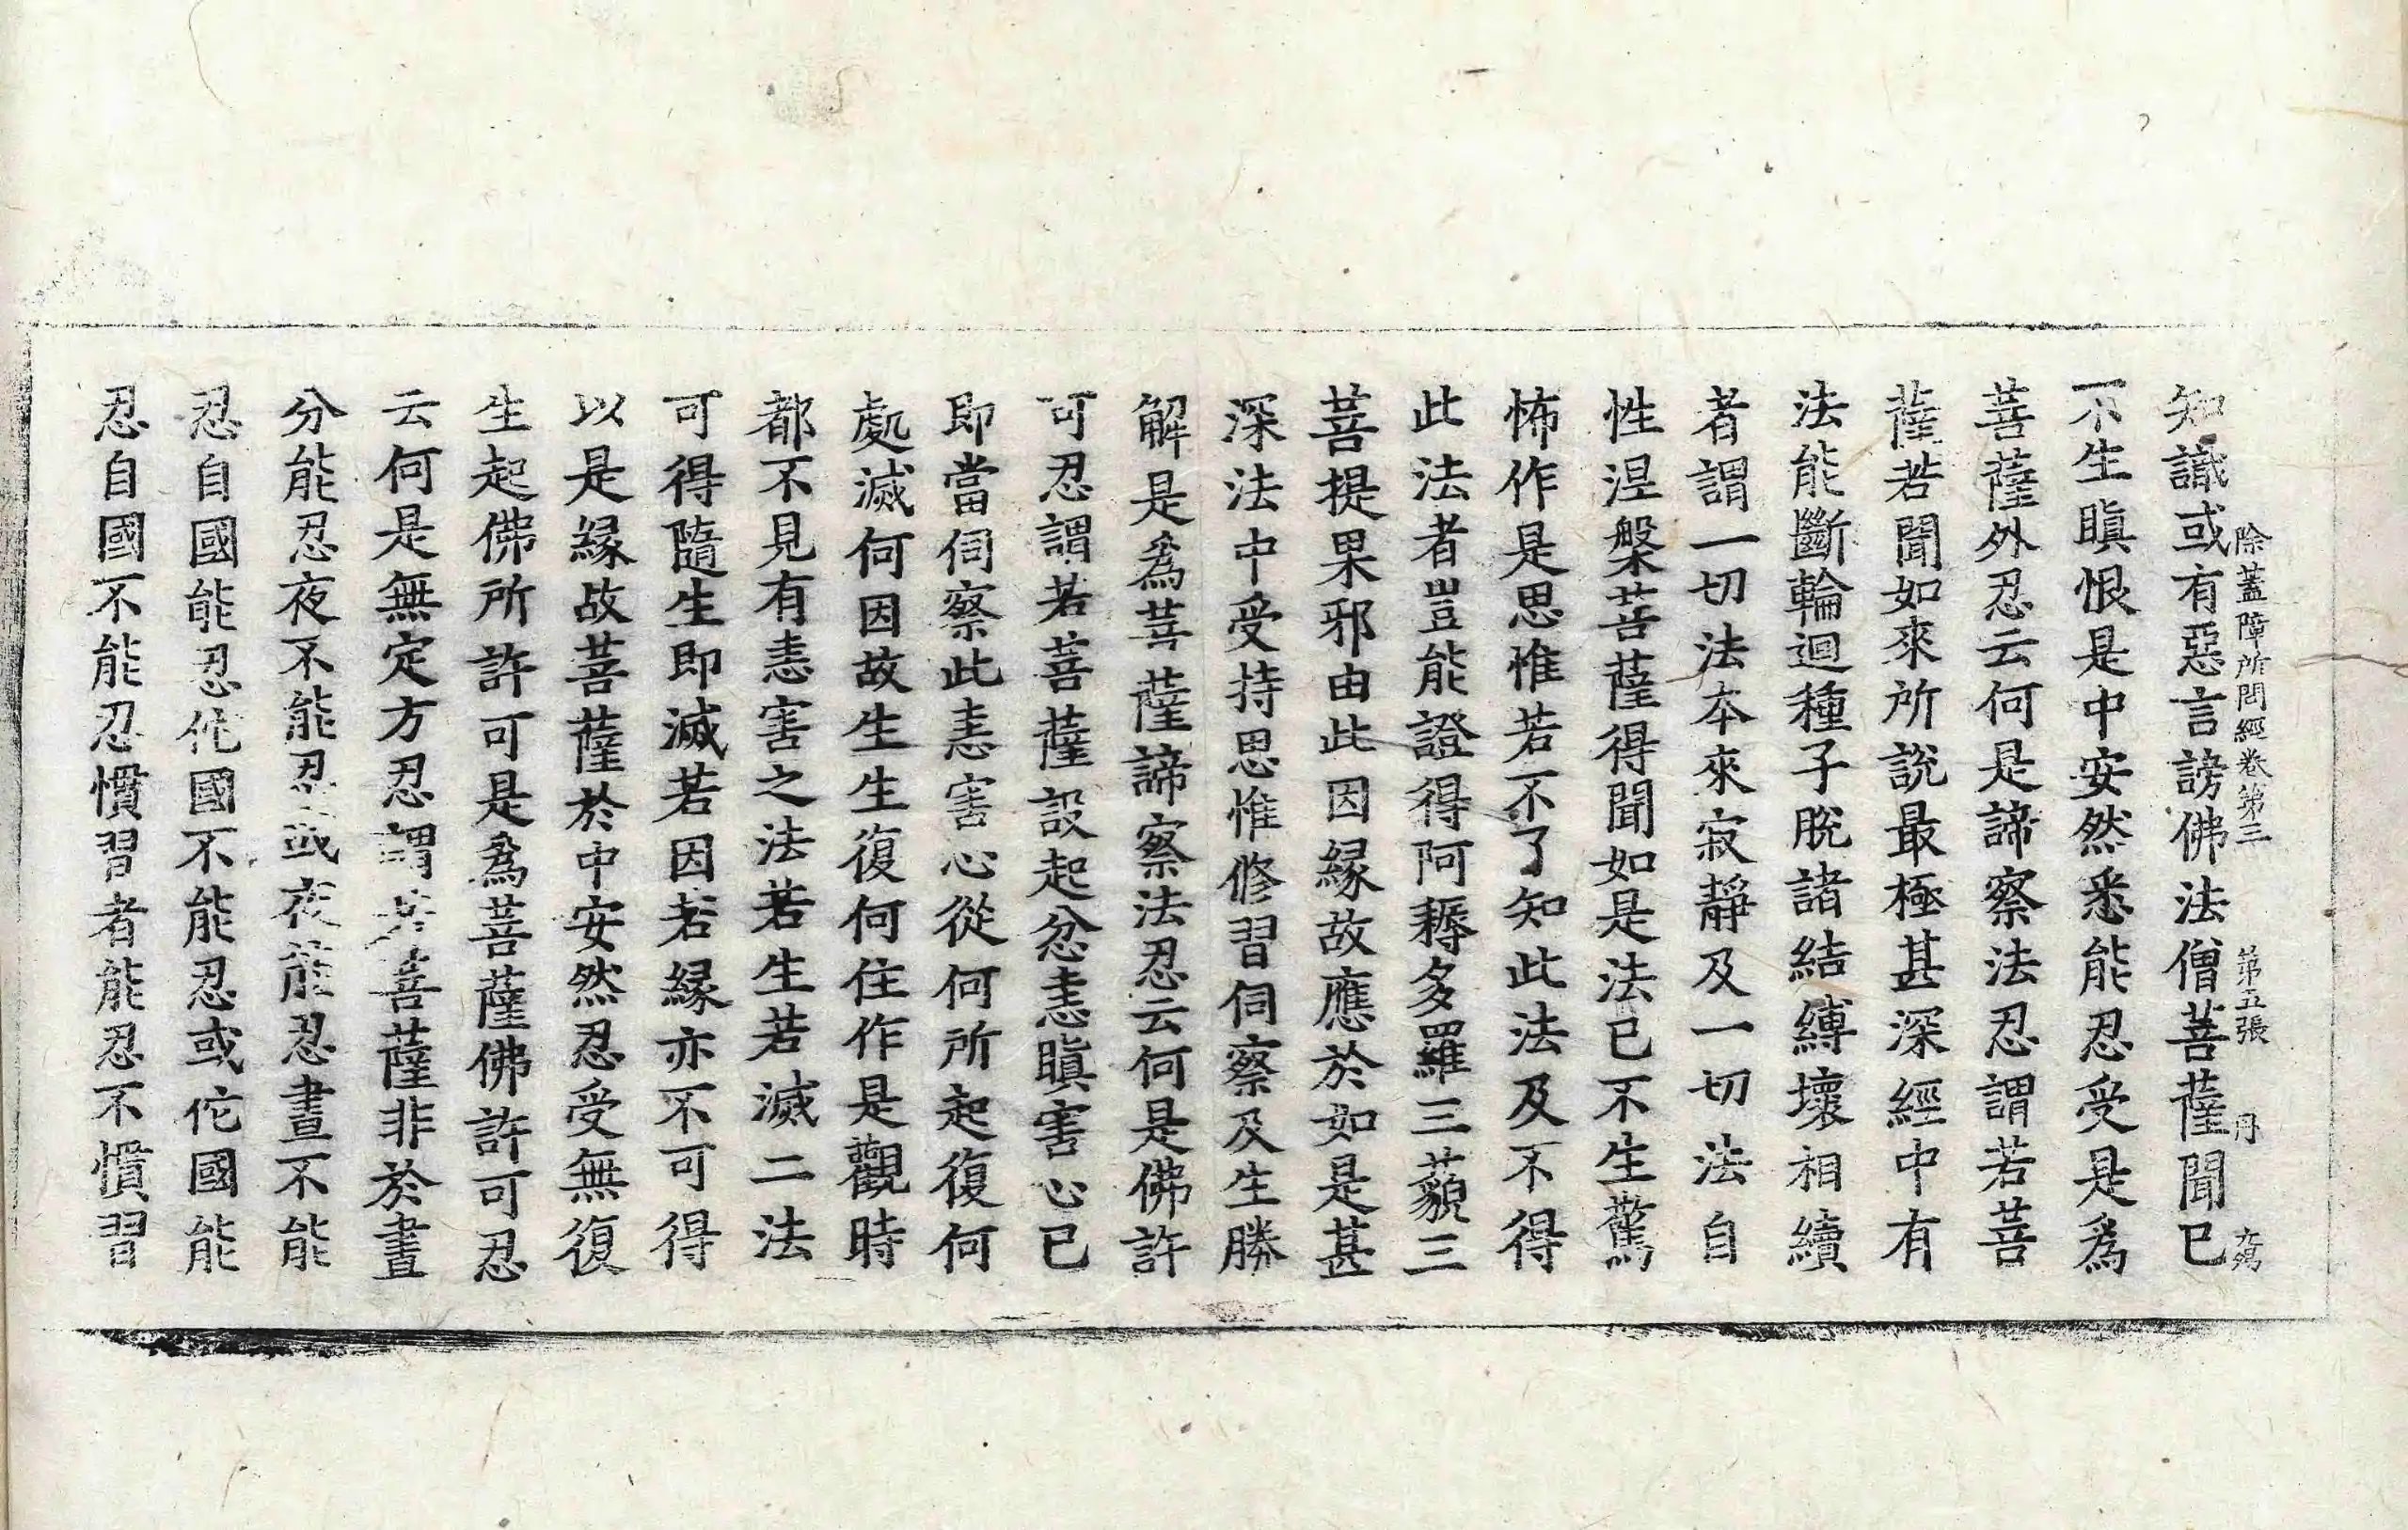 除蓋障所問經卷第三 第五張 丹
知識或有惡言謗佛法僧菩薩聞已
不生瞋恨是中安然悉能忍受是爲
菩薩外忍云何是諦察法忍謂若菩
薩若聞如來所說最極甚深經中有
法能斷輪迴種子脫諸結縛壞相續
者謂一切法本來寂靜及一切法自
性涅槃菩薩得聞如是法已不生驚
怖作是思惟若不了知此法及不得
此法者豈能證得阿耨多羅三藐三
菩提果邪由此因緣故應於如是甚
深法中受持思惟修習伺察及生勝
解是爲菩薩諦察法忍云何是佛許
可忍謂若菩薩設起忿恚瞋害心已
即當伺察此恚害心從何所起復何
處滅何因故生生復何住作是觀時
都不見有恚害之法若生若滅二法
可得隨生即滅若因若緣亦不可得
以是緣故菩薩於中安然忍受無復
生起佛所許可是爲菩薩佛許可忍
云何是無定方忍謂若菩薩非於晝
分能忍夜不能忍或夜能忍晝不能
忍自國能忍佗國不能忍或佗國能
忍自國不能忍慣習者能忍不慣習